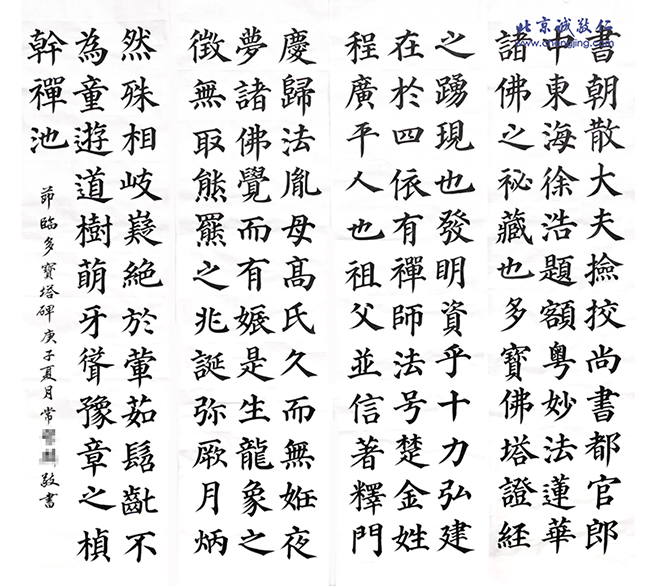 書朝散大夫撿挍尚書都官郎
中東海徐浩題額粵妙法蓮華
諸佛之祕藏也多寶佛塔證経
之踴現也發明資乎十力弘建
在於四依有禪師法号楚金姓
程廣平人也祖父並信著釋門
慶歸法胤母髙氏久而無姙夜
夢諸佛覺而有娠是生龍象之
徵無取熊羆之兆誕弥厥月炳
然殊相岐嶷絶於葷茹髫齔不
為童遊道樹萌牙聳豫章之楨
幹禪池
節臨多寶塔碑庚子夏月常敬書
北京诚敬行